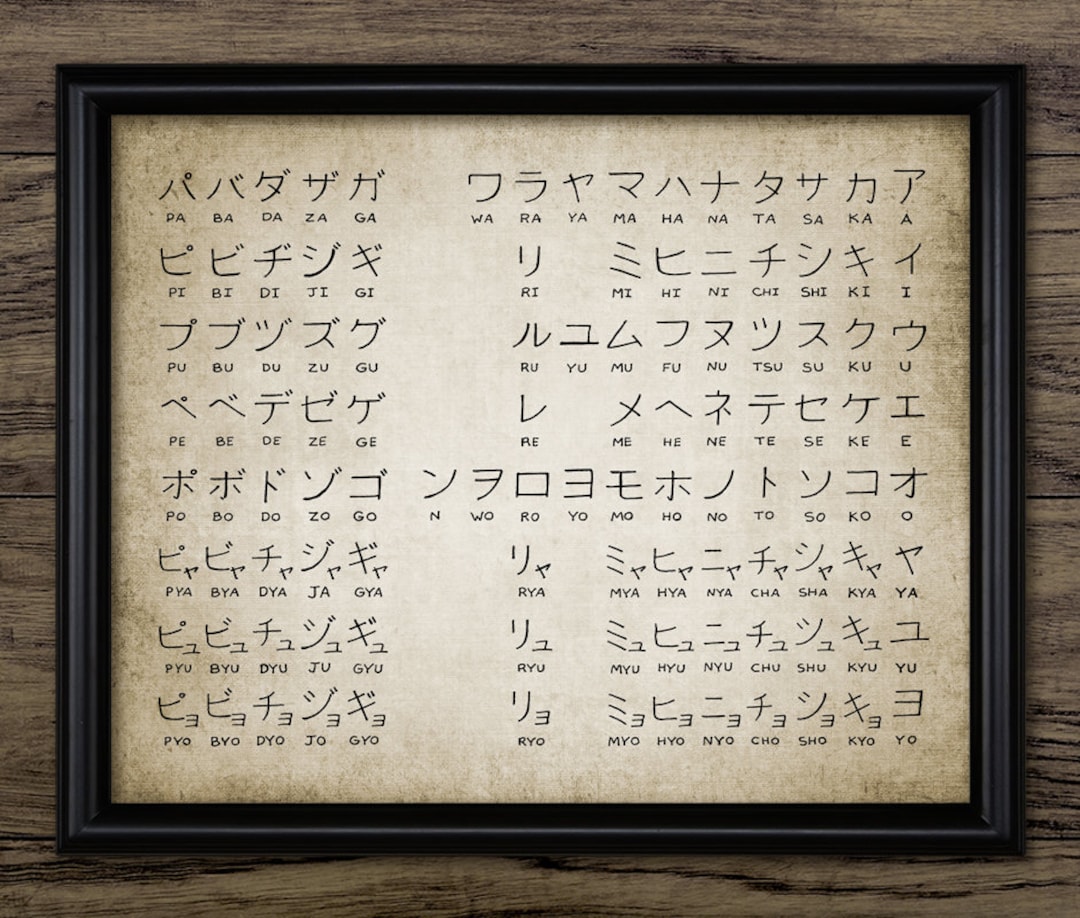 パ バ ダ ザ ガ ワ ラ ヤ マ ハ ナ タ サ カ ア
PA BA DA ZA GA WA RA YA MA HA NA TA SA KA A
ピ ビ ヂ ジ ギ リ ミ ヒ ニ チ シ キ イ
PI BI DI JI GI RI MI HI NI CHI SHI KI I
プ ブ ヅ ズ グ ル ユ ム フ ヌ ツ ス ク ウ
PU BU DU ZU GU RU YU MU FU NU TSU SU KU U
ペ ベ デ ゼ ゲ レ メ ヘ ネ テ セ ケ エ
PE BE DE ZE GE RE ME HE NE TE SE KE E
ポ ボ ド ゾ ゴ ン ヲ ロ ヨ モ ホ ノ ト ソ コ オ
PO BO DO ZO GO N WO RO YO MO HO NO TO SO KO O
ピャ ビャ チャ ジャ ギャ リャ ミャ ヒャ ニャ チャ シャ キャ ヤ
PYA BYA DYA JA GYA RYA MYA HYA NYA CHA SHA KYA YA
ピュ ビュ チュ ジュ ギュ リュ ミュ ヒュ ニュ チュ ツュ キュ ユ
PYU BYU DYU JU GYU RYU MYU HYU NYU CHU SHU KYU YU
ピョ ビョ チョ ジョ ギョ リョ ミョ ヒョ ニョ チョ ショ キョ ヨ
PYO BYO DYO JO GYO RYO MYO HYO NYO CHO SHO KYO YO